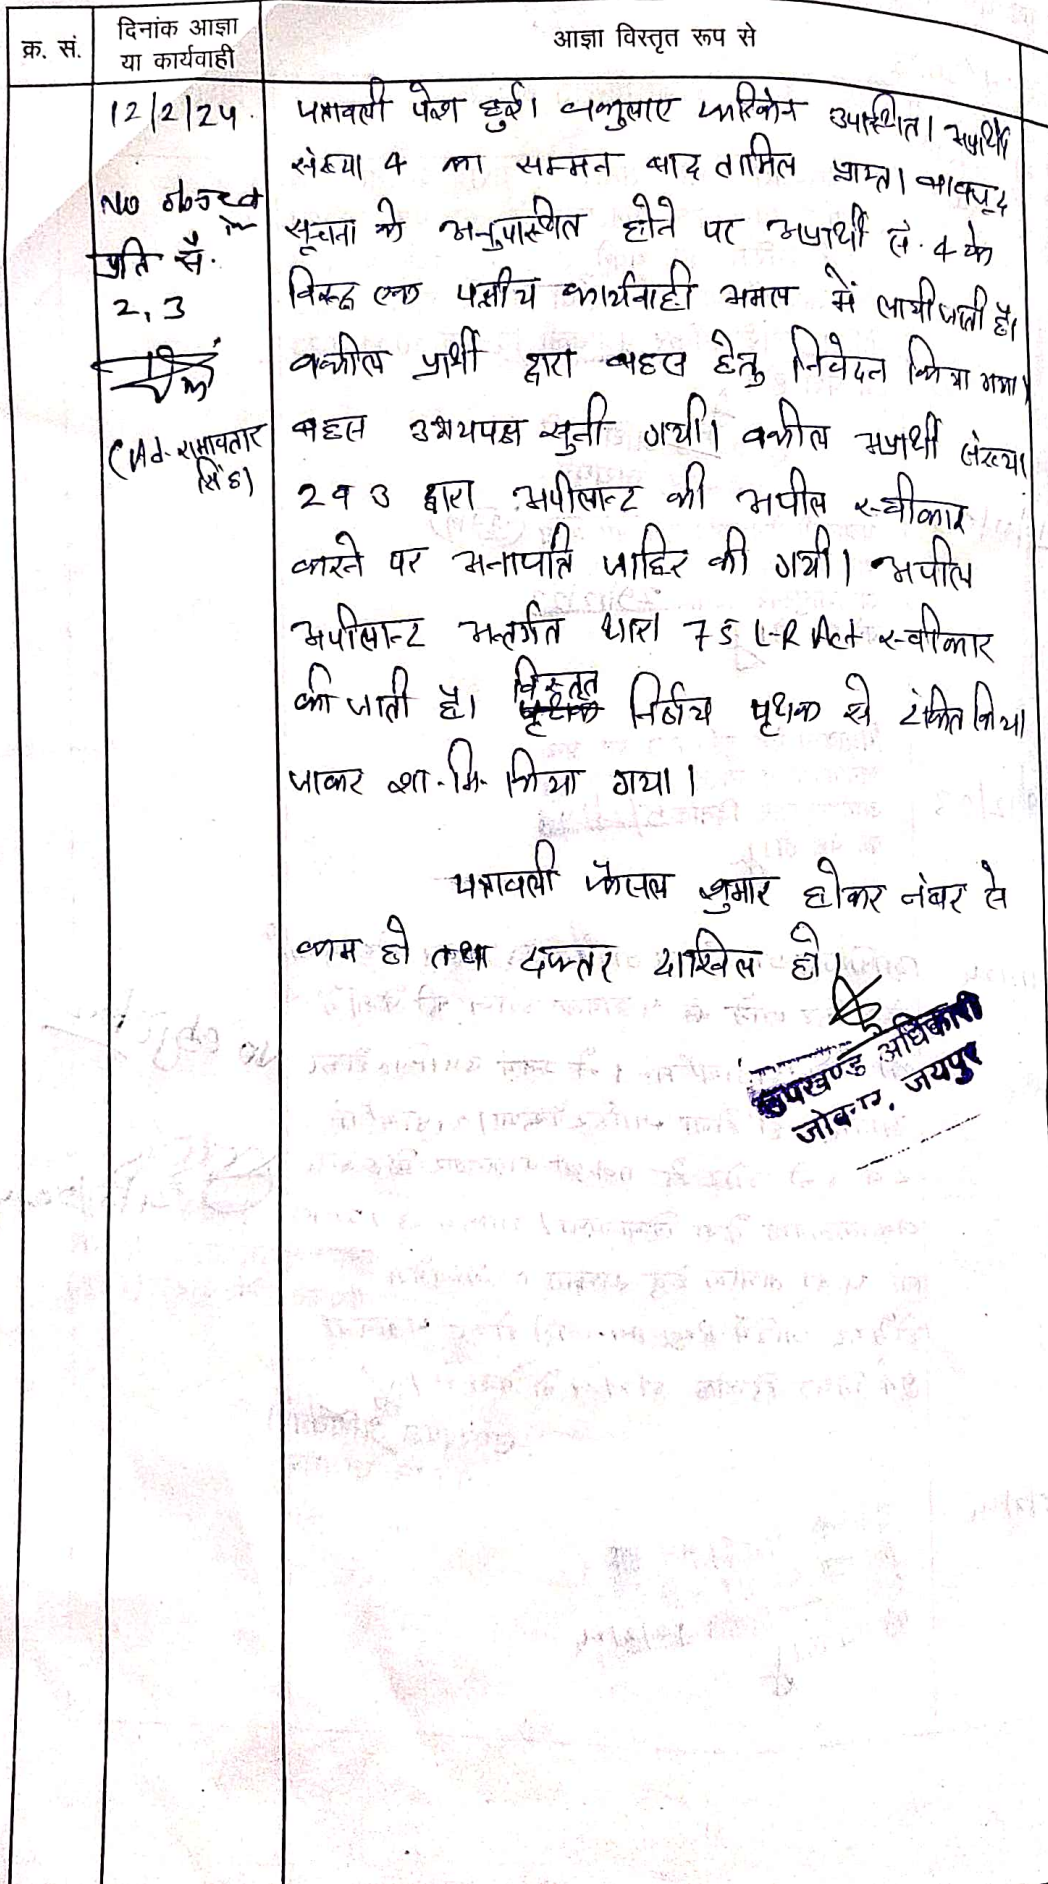 क्र. सं.
दिनांक आज्ञा
या कार्यवाही
आज्ञा विस्तृत रूप से
12/2/24.
No object
प्रति सं.
2, 3
(Ad. रामावतार
सिंह)
पत्रावली पेश हुई। वकुलाए फरिकेन उपस्थित। अप्रार्थी
संख्या 4 का सम्मन बाद तामिल प्राप्त। बावजूद
सूचना के अनुपस्थित होने पर अप्रार्थी सं. 4 के
विरूद्ध एक पक्षीय कार्यवाही अमल में लायी जाती है।
वकील प्रार्थी द्वारा बहस हेतु निवेदन किया गया।
बहस उभयपक्ष सुनी गयी। वकील अप्रार्थी संख्या
2 व 3 द्वारा अपीलान्ट की अपील स्वीकार
करने पर अनापत्ति जाहिर की गयी। अपील
अपीलान्ट अन्तर्गत धारा 75 L-R Act स्वीकार
की जाती है। विस्तृत निर्णय पृथक से टंकित किया
जाकर शा.मि. किया गया।
पत्रावली फैसल शुमार होकर नंबर से
कम हो तथा दफ्तर दाखिल हो।
उपखण्ड अधिकारी
जोबनेर, जयपुर